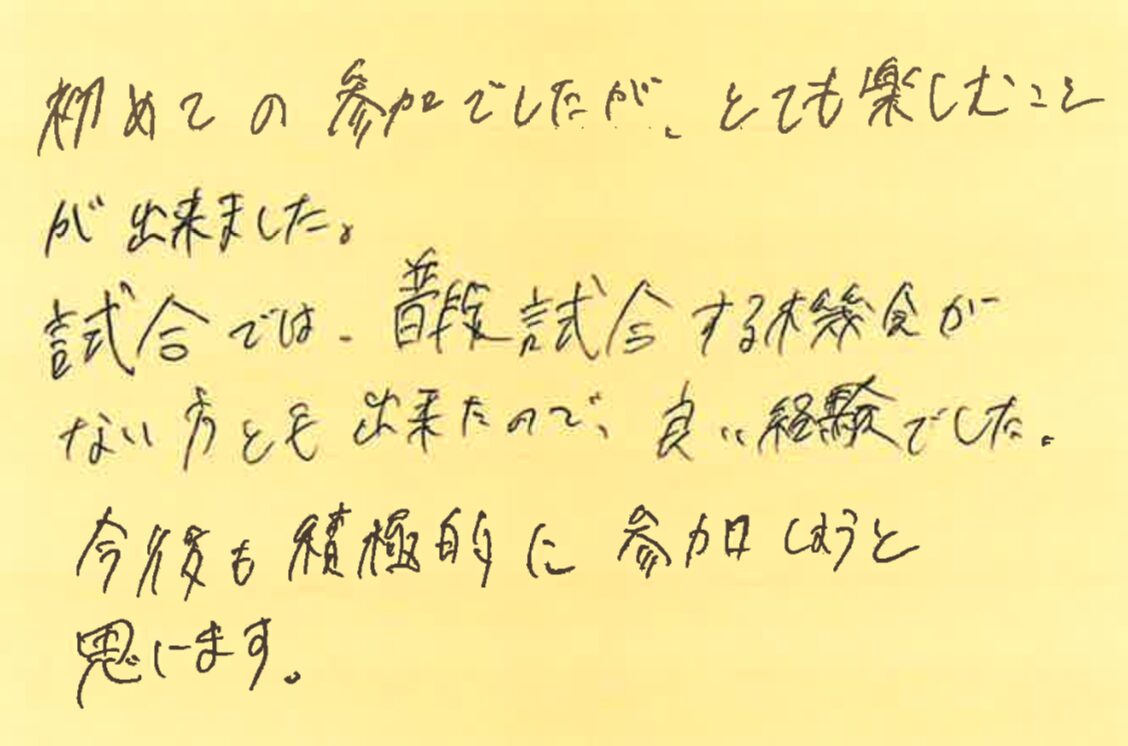 初めての参加でしたが、とても楽しむこと
が出来ました。
試合では、普段試合する機会が
ない方とも出来たので、良い経験でした。
今後も積極的に参加しようと
思います。